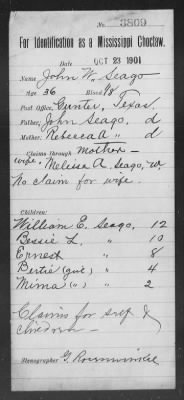 No. 3809
For Identification as a Mississippi Choctaw.
Date OCT 23 1901
Name John W. Seago
Age 36 Blood 1/8
Post Office, Gunter, Texas.
Father, John Seago, d
Mother, Rebecca A " d
Claims through Mother -
wife, Melisa A. Seago, w.
No claim for wife.
Children:
William E. Seago, 12
Bessie L. " 10
Ernest " 8
Bertie (girl) " 4
Mima (") " 2
Claims for self &
children -
Stenographer G. Rosenwinkel